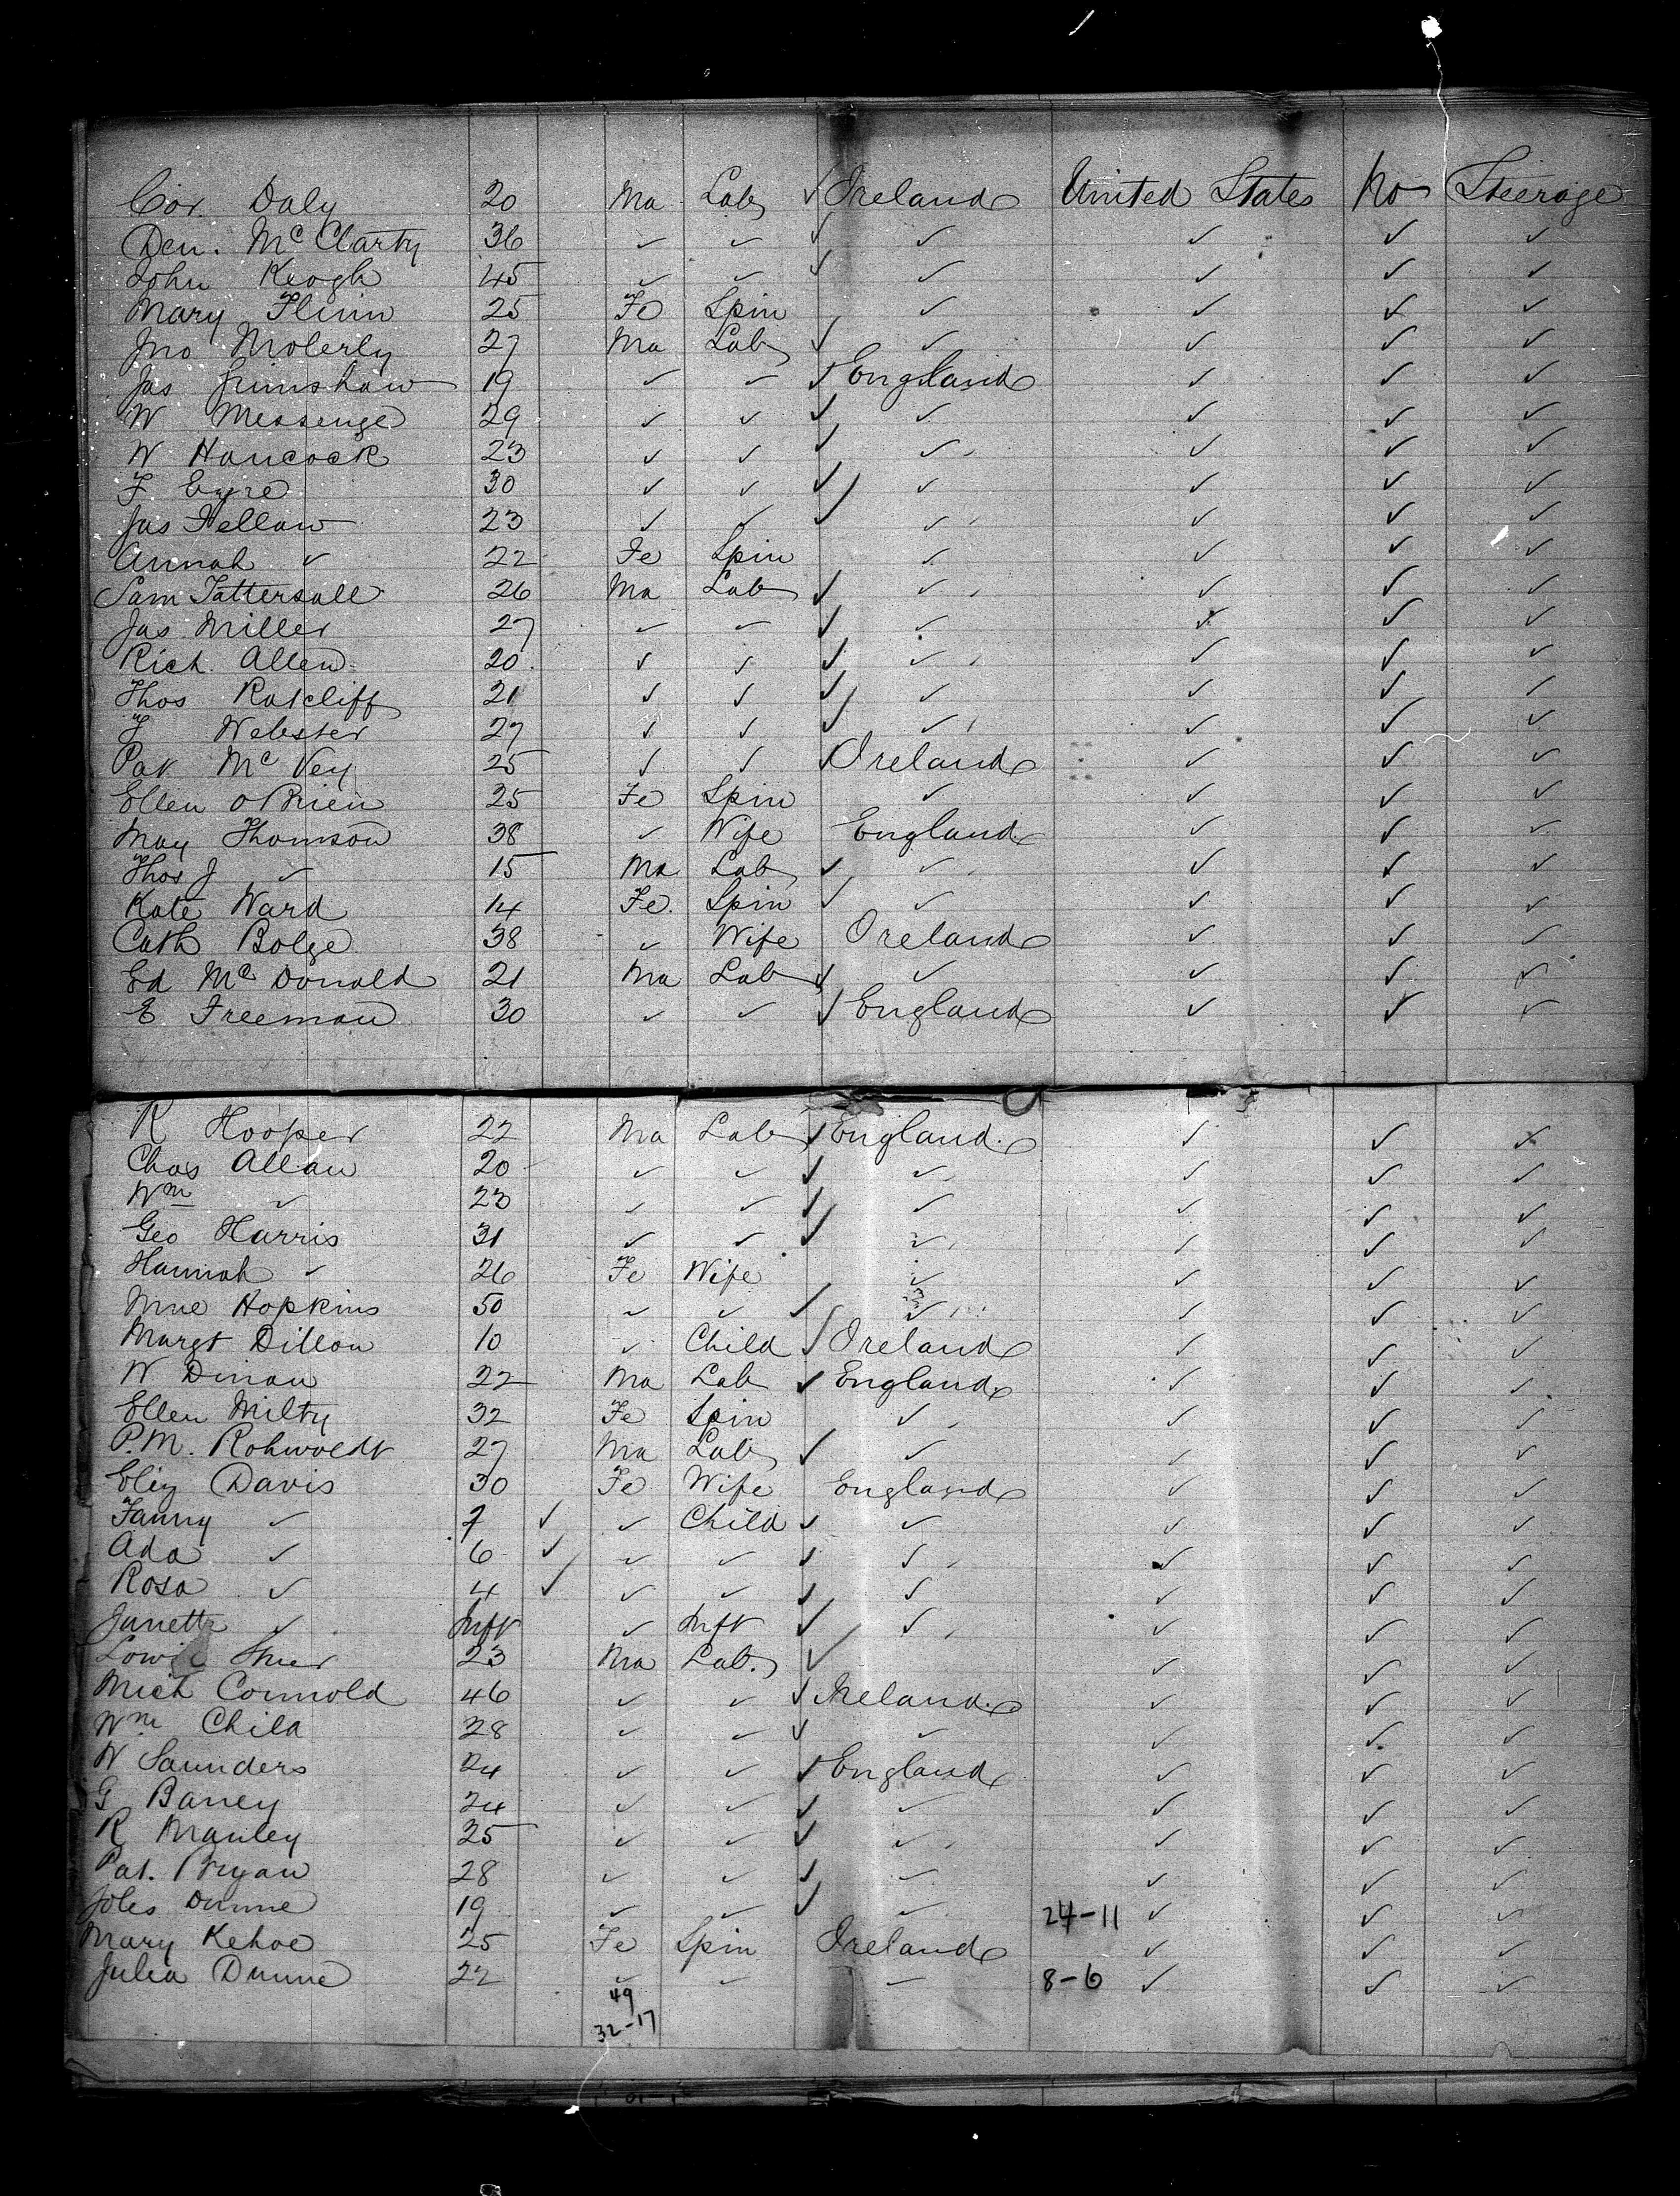 Cor. Daly 20 Ma Lab ✓ Ireland United States No Steerage
Den. McClarty 36 ✓ ✓ ✓ ✓ ✓ ✓ ✓
John Keogh 45 ✓ ✓ ✓ ✓ ✓ ✓ ✓
Mary Flinn 25 Fe Spin ✓ ✓ ✓ ✓
Jno Molerly 27 Ma Lab ✓ ✓ ✓ ✓ ✓
Jas Grimshaw 19 ✓ ✓ ✓ England ✓ ✓ ✓
W Messenge 29 ✓ ✓ ✓ ✓ ✓ ✓ ✓
W Hancock 23 ✓ ✓ ✓ ✓ ✓ ✓ ✓
F Eyre 30 ✓ ✓ ✓ ✓ ✓ ✓ ✓
Jas Fellow 23 ✓ ✓ ✓ ✓ ✓ ✓ ✓
Annah ✓ 22 Fe Spin ✓ ✓ ✓ ✓
Sam Tattersall 26 Ma Lab ✓ ✓ ✓ ✓ ✓
Jas Miller 27 ✓ ✓ ✓ ✓ ✓ ✓ ✓
Rich. Allen 20 ✓ ✓ ✓ ✓ ✓ ✓ ✓
Thos Ratcliff 21 ✓ ✓ ✓ ✓ ✓ ✓ ✓
J Webster 27 ✓ ✓ ✓ ✓ ✓ ✓ ✓
Pat McVey 25 ✓ ✓ ✓ Ireland ✓ ✓ ✓
Ellen O'Brien 25 Fe Spin ✓ ✓ ✓ ✓
May Thomson 38 ✓ Wife England ✓ ✓ ✓
Thos J ✓ 15 Ma Lab ✓ ✓ ✓ ✓ ✓
Kate Ward 14 Fe. Spin ✓ ✓ ✓ ✓ ✓
Cath Bolge 38 ✓ Wife Ireland ✓ ✓ ✓
Ed McDonald 21 Ma Lab ✓ ✓ ✓ ✓ ✓
E Freeman 30 ✓ ✓ ✓ England ✓ ✓ ✓
R Hooper 22 Ma Lab ✓ England ✓ ✓ ✓
Chas Allan 20 ✓ ✓ ✓ ✓ ✓ ✓ ✓
Wm ✓ 23 ✓ ✓ ✓ ✓ ✓ ✓ ✓
Geo Harris 31 ✓ ✓ ✓ ✓ ✓ ✓ ✓
Hannah ✓ 26 Fe Wife ✓ ✓ ✓ ✓
Mme Hopkins 50 ✓ ✓ ✓ ✓ ✓ ✓ ✓
Margt Dillon 10 ✓ Child ✓ Ireland ✓ ✓ ✓
W Dinan 22 Ma Lab ✓ England ✓ ✓ ✓
Ellen Milty 32 Fe Spin ✓ ✓ ✓ ✓
P.M. Rohwoedt 27 Ma Lab ✓ ✓ ✓ ✓ ✓
Eliz Davis 30 Fe Wife England ✓ ✓ ✓
Fanny ✓ 7 ✓ ✓ Child ✓ ✓ ✓ ✓ ✓
Ada ✓ 6 ✓ ✓ ✓ ✓ ✓ ✓ ✓ ✓
Rosa ✓ 4 ✓ ✓ ✓ ✓ ✓ ✓ ✓ ✓
Janette ✓ Inft ✓ Inft ✓ ✓ ✓ ✓ ✓
23 Ma Lab. ✓ ✓ ✓ ✓
Mich Connold 46 ✓ ✓ ✓ Ireland ✓ ✓ ✓
Wm Child 28 ✓ ✓ ✓ ✓ ✓ ✓ ✓
W Saunders 24 ✓ ✓ ✓ England ✓ ✓ ✓
G Baney 24 ✓ ✓ ✓ ✓ ✓ ✓ ✓
R Manley 25 ✓ ✓ ✓ ✓ ✓ ✓ ✓
Pat. Bryan 28 ✓ ✓ ✓ ✓ ✓ ✓ ✓
Dunne 19 ✓ ✓ ✓ ✓ 24-11 ✓ ✓ ✓
Mary Kehoe 25 Fe Spin Ireland ✓ ✓ ✓
Julia Dunne 22 ✓ ✓ ✓ 8-6 ✓ ✓ ✓
49
32-17